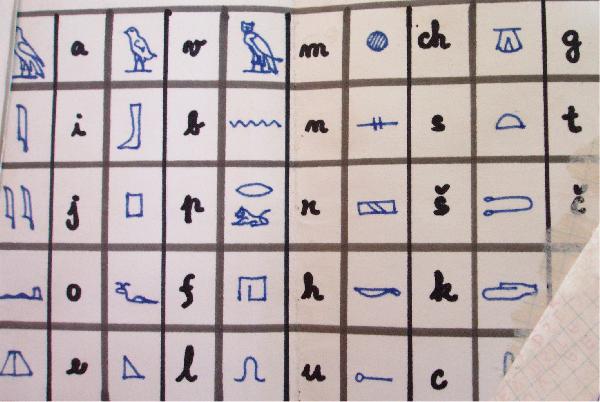 a v m ch g
i b n s t
j p r š č
o f h k
e l u c